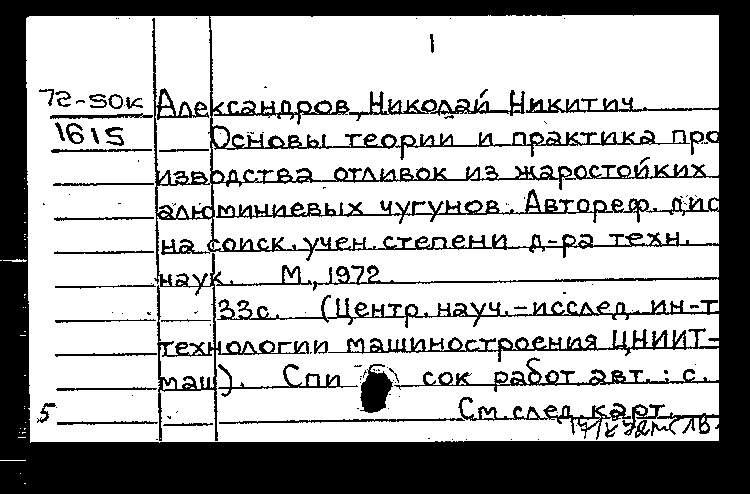 1
72-50к Александров, Николай Никитич.
1615 Основы теории и практика про
изводства отливок из жаростойких
алюминиевых чугунов. Автореф. дис
на соиск. учен. степени д-ра техн.
наук. М., 1972.
33с. (Центр. науч.-исслед. ин-т
технологии машиностроения ЦНИИТ-
маш). Спи сок работ авт.: с.
5 См. след. карт.